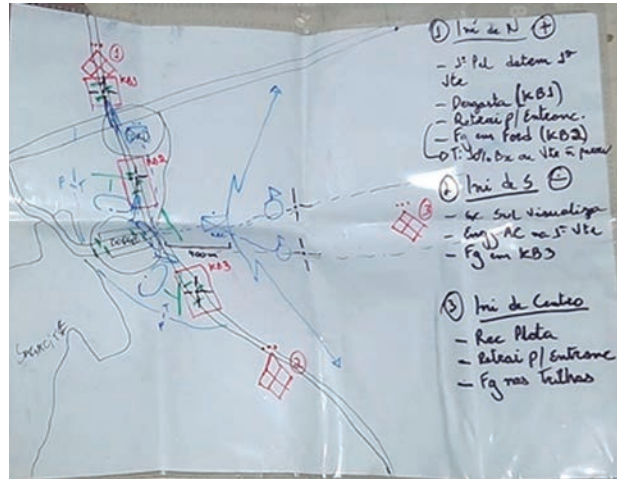 ① Ini de N +
- 1º Pel detem 1ª
Vte
- Desgasta (KB1)
- Retrai p/ Entronc.
- Fg em Ford (KB2)
② Ini de S −
- GC Sul visualiza
- Eng AC na 1ª Vte
- Fg em KB3
③ Ini de Centro
- Rec Plota
- Retrai p/ Entronc
- Fg nas Trilhas
①
KB1
KB2
③
400m
KB3
②